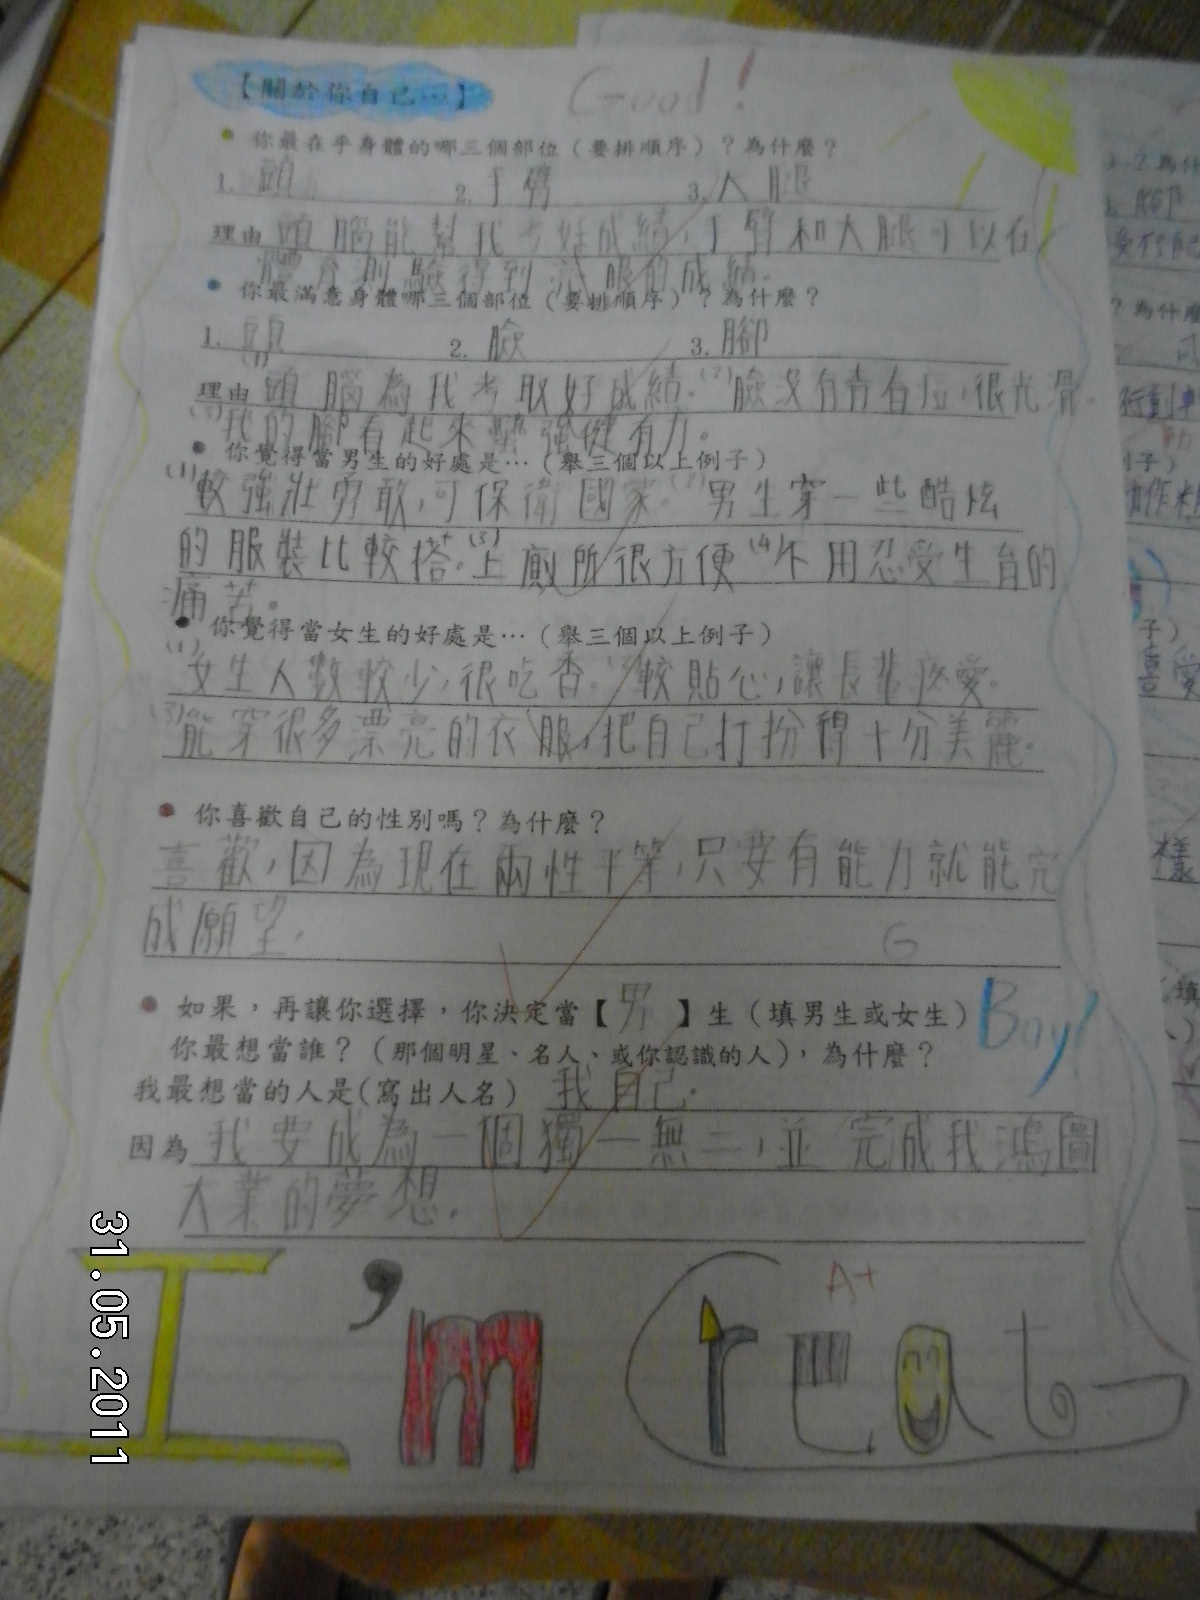 【關於你自己…】
Good!
你最在乎身體的哪三個部位（要排順序）？為什麼？
1. 頭 2. 手臂 3. 大腿
理由 頭腦能幫我考好成績，手臂和大腿可以在
體育測驗得到 服的成績。
你最滿意身體哪三個部位（要排順序）？為什麼？
1. 頭 2. 臉 3. 腳
理由 (1)頭腦為我考取好成績。(2)臉沒有青春痘，很光滑。
(3)我的腳看起來 強健有力。
你覺得當男生的好處是…（舉三個以上例子）
(1)較強壯勇敢，可保衛國家。(2)男生穿一些酷炫
的服裝比較搭。(3)上廁所很方便(4)不用忍受生育的
痛苦。
你覺得當女生的好處是…（舉三個以上例子）
(1)女生人數較少，很吃香。(2)較貼心，讓長輩疼愛。
(3)能穿很多漂亮的衣服，把自己打扮得十分美麗。
你喜歡自己的性別嗎？為什麼？
喜歡，因為現在兩性平等，只要有能力就能完
成願望。
G
如果，再讓你選擇，你決定當【男】生（填男生或女生）
Boy!
你最想當誰？（那個明星、名人、或你認識的人），為什麼？
我最想當的人是(寫出人名) 我自己。
因為 我要成為一個獨一無二，並完成我鴻圖
大業的夢想。
A+
I'm Great
31.05.2011